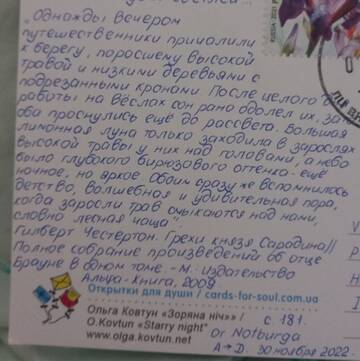 „Однажды вечером
путешественники причалили
к берегу, поросшему высокой
травой и низкими деревьями с
подрезанными кронами. После целого дня
работы на вёслах сон рано одолел их, зато
оба проснулись ещё до рассвета. Большая
лимонная луна только заходила в зарослях
высокой травы у них над головами, а небо
было глубокого бирюзового оттенка - ещё
ночное, но яркое. Обоим сразу же вспомнилось
детство, волшебная и удивительная пора,
когда заросли трав смыкаются над нами,
словно лесная чаща."
Гилберт Честертон. Грехи князя Сарадина//
Полное собрание произведений об отце
Брауне в одном томе.-М.: Издательство
Альфа-Книга, 2009
с 181.
Открытки для души / cards-for-soul.com.ua
Ольга Ковтун «Зоряна ніч» /
O.Kovtun "Starry night"
www.olga-kovtun.net
Dr Notburga
A→D. 30 ноября 2022
RUSSIA 2021